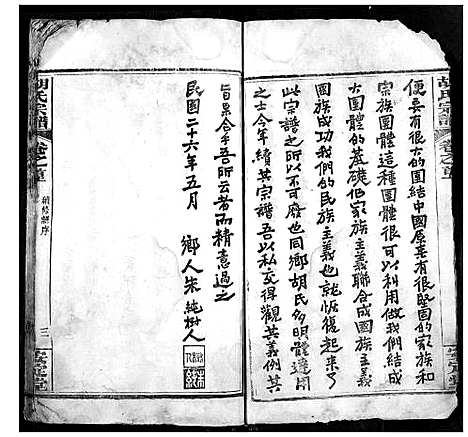 胡氏宗譜
卷之首
便要有很大的團結中國原来有很堅固的家族和
宗族團體這種團體很可以利用做我們結成
大團體的基礎但家族主義聯合成國族主義
國族成功我們的民族主義也就恢復起来了
此宗譜之所以不可廢也同鄉胡氏多明體達用
之士今年續其宗譜吾以私交得觀其義例其
旨果合乎吾所云者而精意過之
民國二十六年五月
鄉人朱純樹人
胡氏宗譜
卷之首
續修譜序
三
安定堂